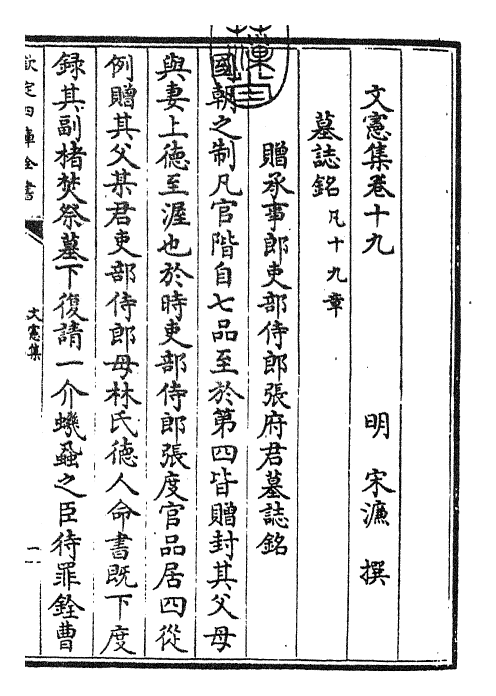 文憲集卷十九
明 宋濂 撰
墓誌銘凡十九章
贈承事郎吏部侍郎張府君墓誌銘
國朝之制凡官階自七品至於第四皆贈封其父母
與妻上徳至渥也於時吏部侍郎張度官品居四從
例贈其父某君吏部侍郎母林氏徳人命書既下度
録其副楮焚祭墓下復請一介蟣蝨之臣待罪銓曹
欽定四庫全書
文憲集
一